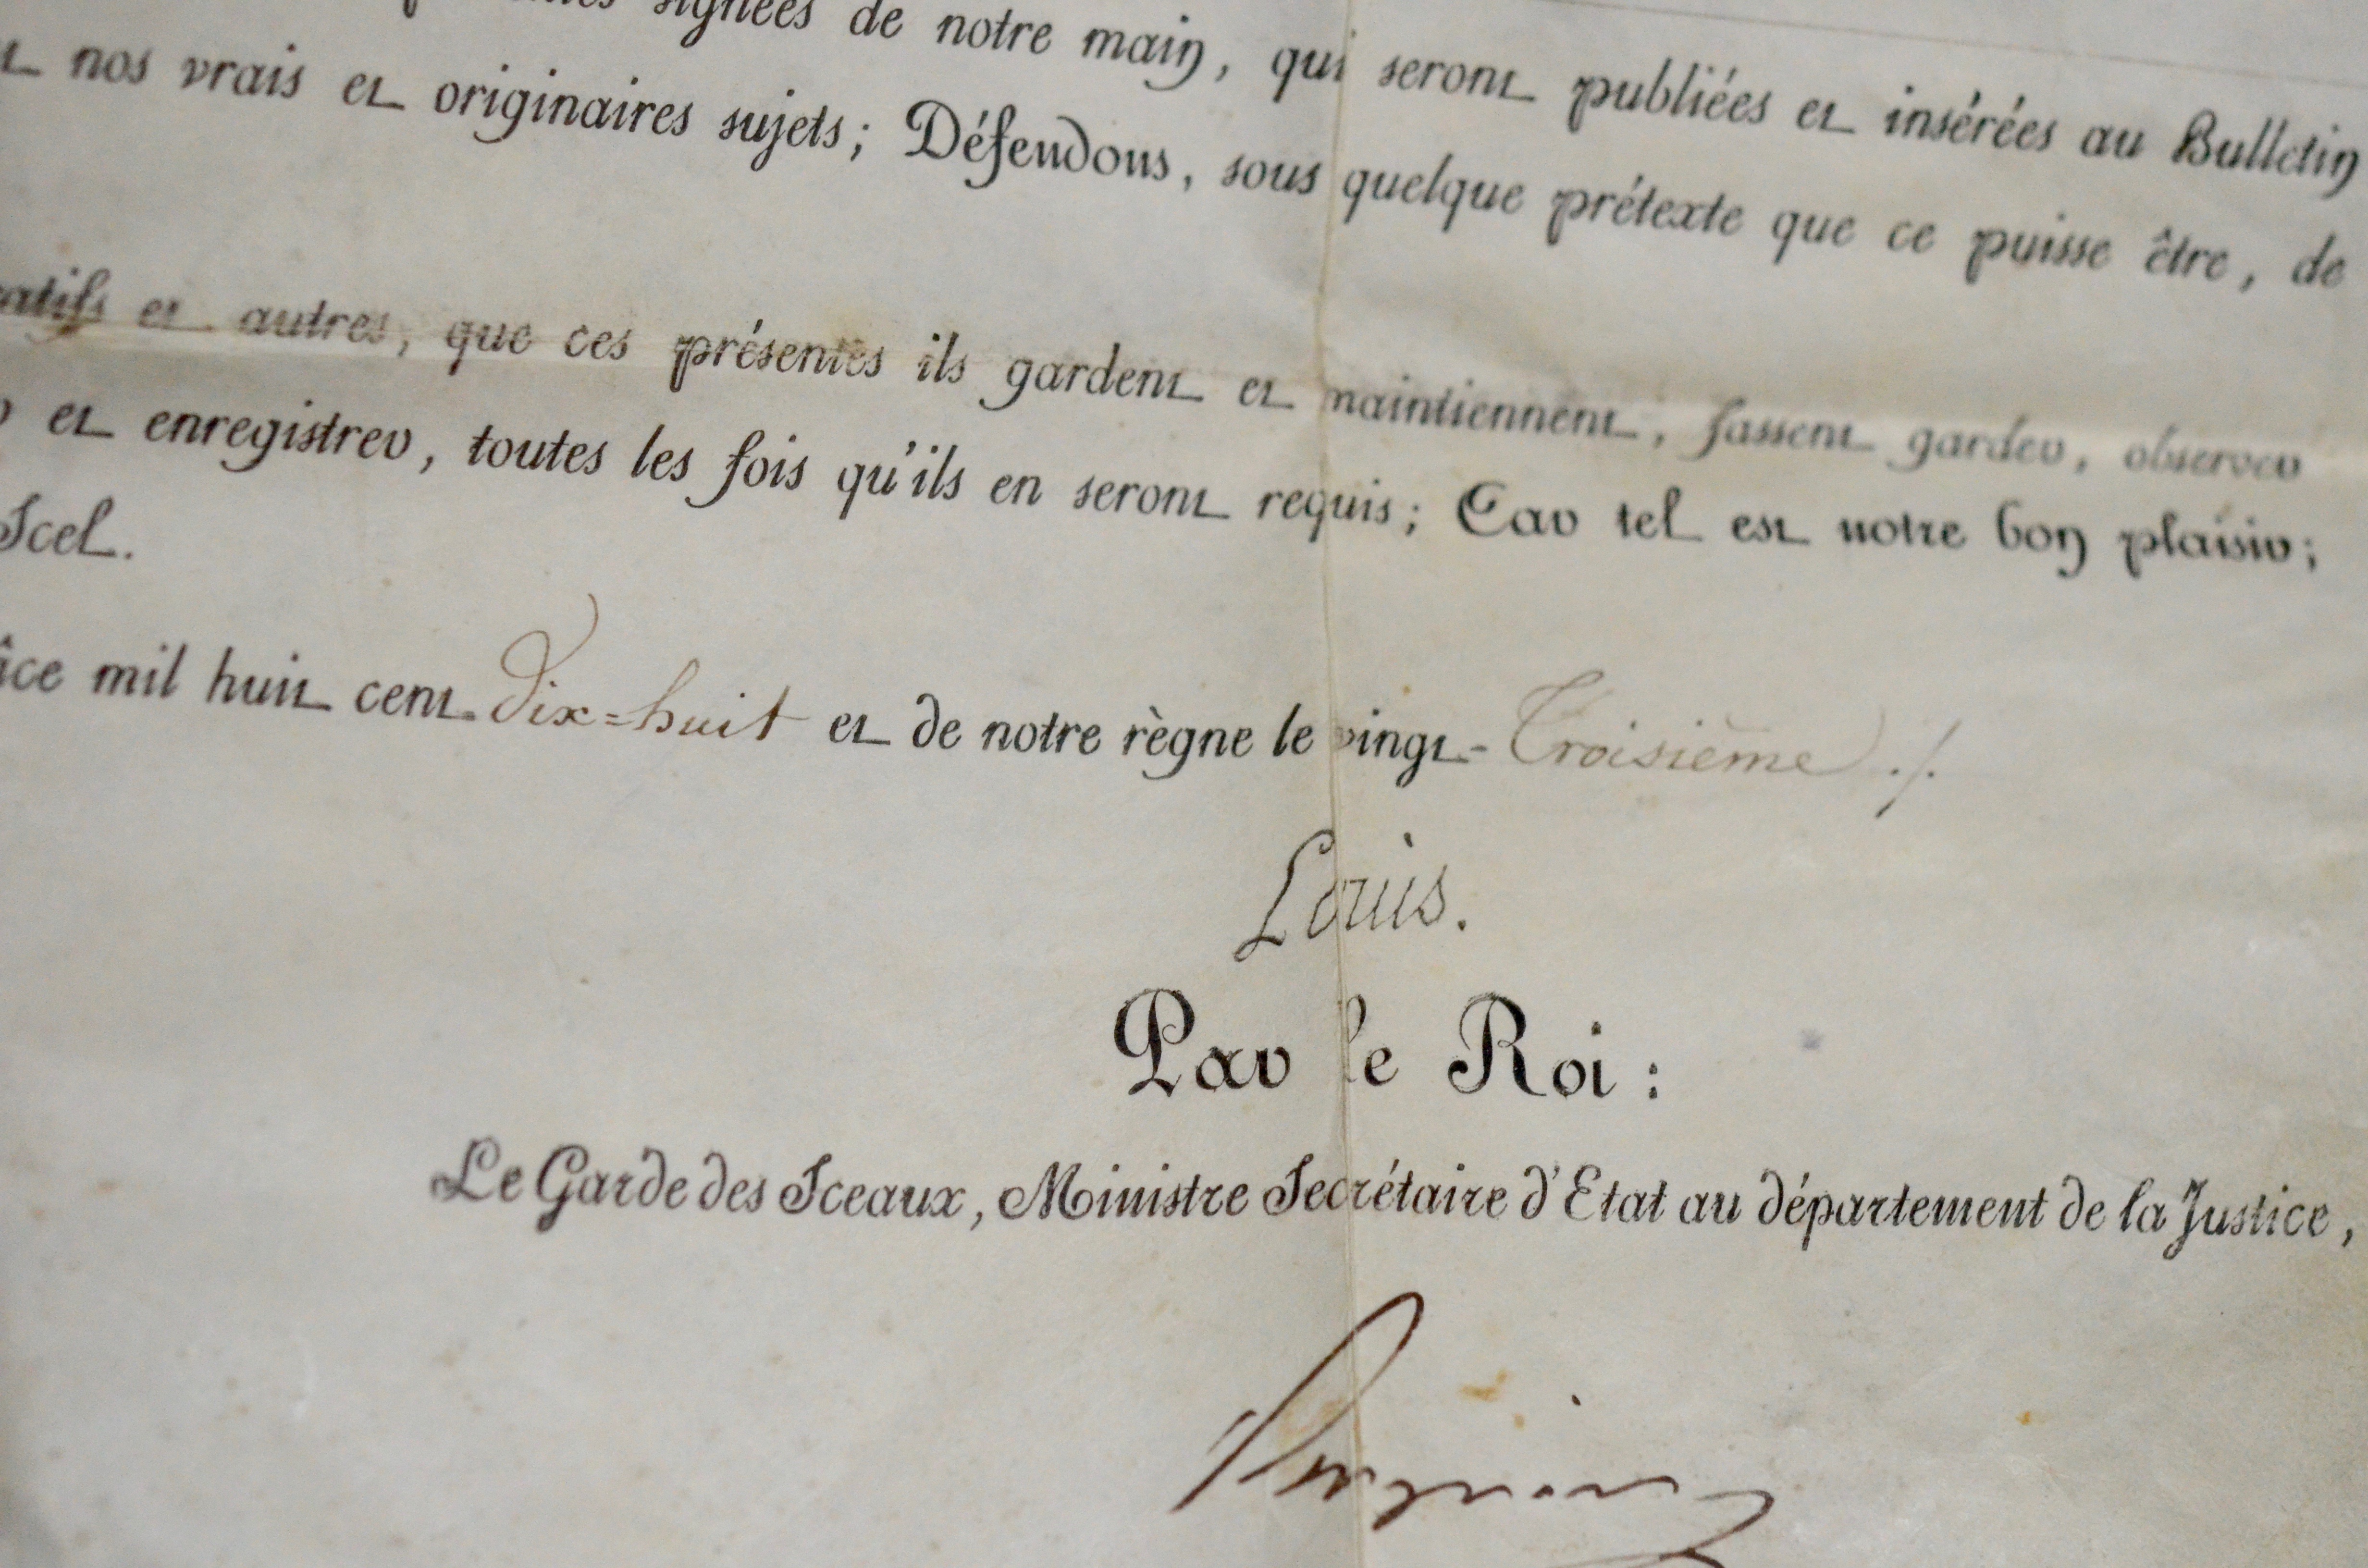 signées de notre main, qui seront publiées et insérées au Bulletin
nos vrais et originaires sujets; Défendons, sous quelque prétexte que ce puisse être, de
et autres, que ces présentes ils gardent et maintiennent, fassent garder, observer
et enregistrer, toutes les fois qu'ils en seront requis; Car tel est notre bon plaisir;
Scel.
mil huit cent Dix=huit et de notre règne le vingt-Troisième ./.
Louis.
Par le Roi :
Le Garde des Sceaux, Ministre Secrétaire d'Etat au département de la Justice,